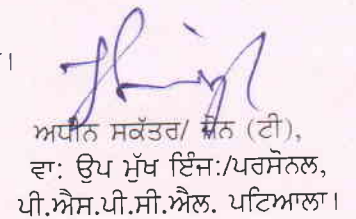 ।
ਅਧੀਨ ਸਕੱਤਰ/ ਜੈਨ (ਟੀ),
ਵਾ: ਉਪ ਮੁੱਖ ਇੰਜ:/ਪਰਸੋਨਲ,
ਪੀ.ਐਸ.ਪੀ.ਸੀ.ਐਲ. ਪਟਿਆਲਾ।